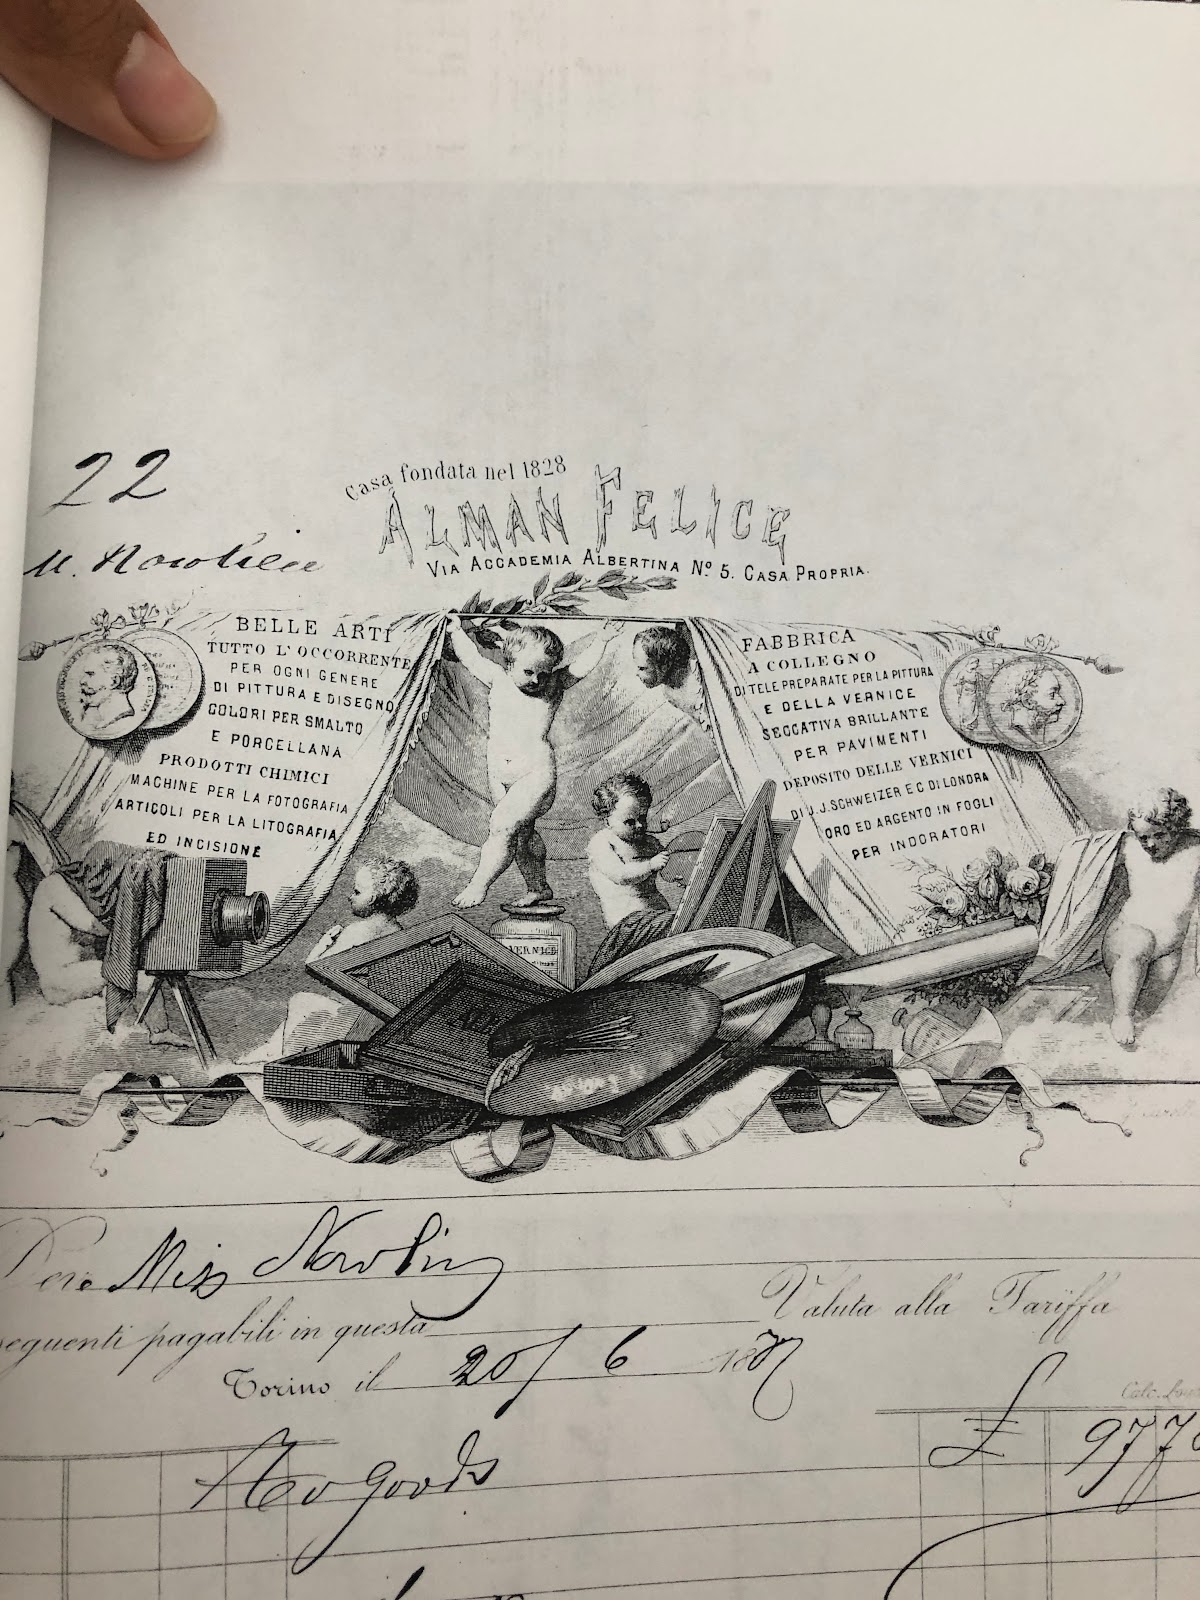 22
Casa fondata nel 1828
ALMAN FELICE
VIA ACCADEMIA ALBERTINA Nº 5. CASA PROPRIA.
BELLE ARTI
TUTTO L'OCCORRENTE
PER OGNI GENERE
DI PITTURA E DISEGNO
COLORI PER SMALTO
E PORCELLANA
PRODOTTI CHIMICI
MACHINE PER LA FOTOGRAFIA
ARTICOLI PER LA LITOGRAFIA
ED INCISIONE
FABBRICA
A COLLEGNO
DI TELE PREPARATE PER LA PITTURA
E DELLA VERNICE
SECCATIVA BRILLANTE
PER PAVIMENTI
DEPOSITO DELLE VERNICI
DI J.J. SCHWEIZER E C DI LONDRA
ORO ED ARGENTO IN FOGLI
PER INDORATORI
VERNICE
Miss
seguenti pagabili in questa
Valuta alla Tariffa
Torino il 20/6 18
To goods £ 977